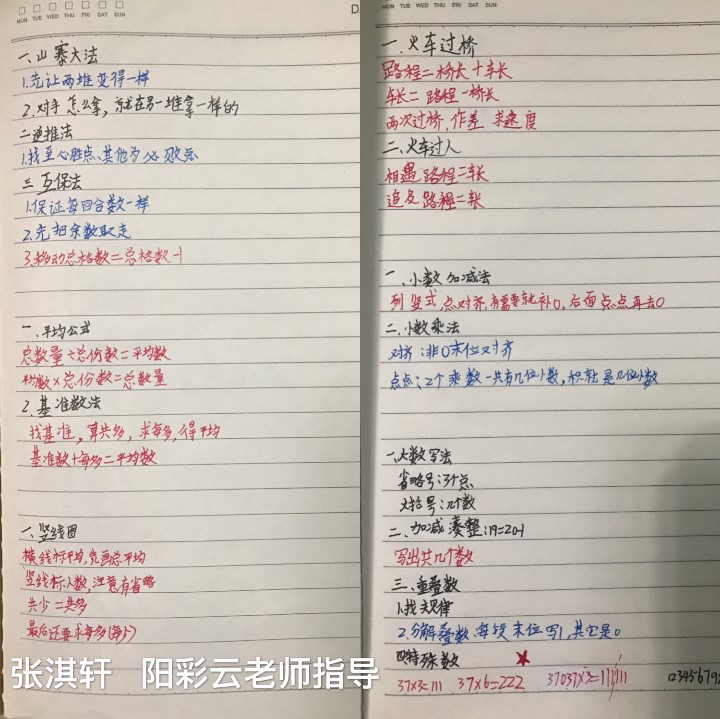 MON TUE WED THU FRI SAT SUN
一、山寨大法
1.先让两堆变得一样
2.对手怎么拿，就在另一堆拿一样的
二逆推法
1.找至心胜点、其他为必败点
三互保法
1.保证每回合数一样
2.先把余数取走
3.移动总格数=总格数-1
一、平均公式
总数量÷总份数=平均数
平均数×总份数=总数量
2.基准数法
找基准，算共多，求每多，得平均
基准数+每多=平均数
一、竖线图
横线标平均,先画总平均
竖线标人数,注意有省略
共少=共多
最后还要求每多(每少)
张淇轩 阳彩云老师指导
MON TUE WED THU FRI SAT SUN
一.火车过桥
路程=桥长+车长
车长=路程-桥长
两次过桥,作差 求速度
二、火车过人
相遇路程=车长
追及路程=车长
一、小数加减法
列竖式点对齐,有需要就补0,后面点点再去0
二.小数乘法
对齐:非0末位对齐
点点:2个乘数一共有几位小数,积就是几位小数
一、大数写法
省略号:3个点
大括号:几个数
二、加减凑整:19=20-1
写出共几个数
三、重叠数
1.找规律
2.分解叠数:每段末位写1,其它是0
四特殊数
37×3=111 37×6=222 37037×3=111111